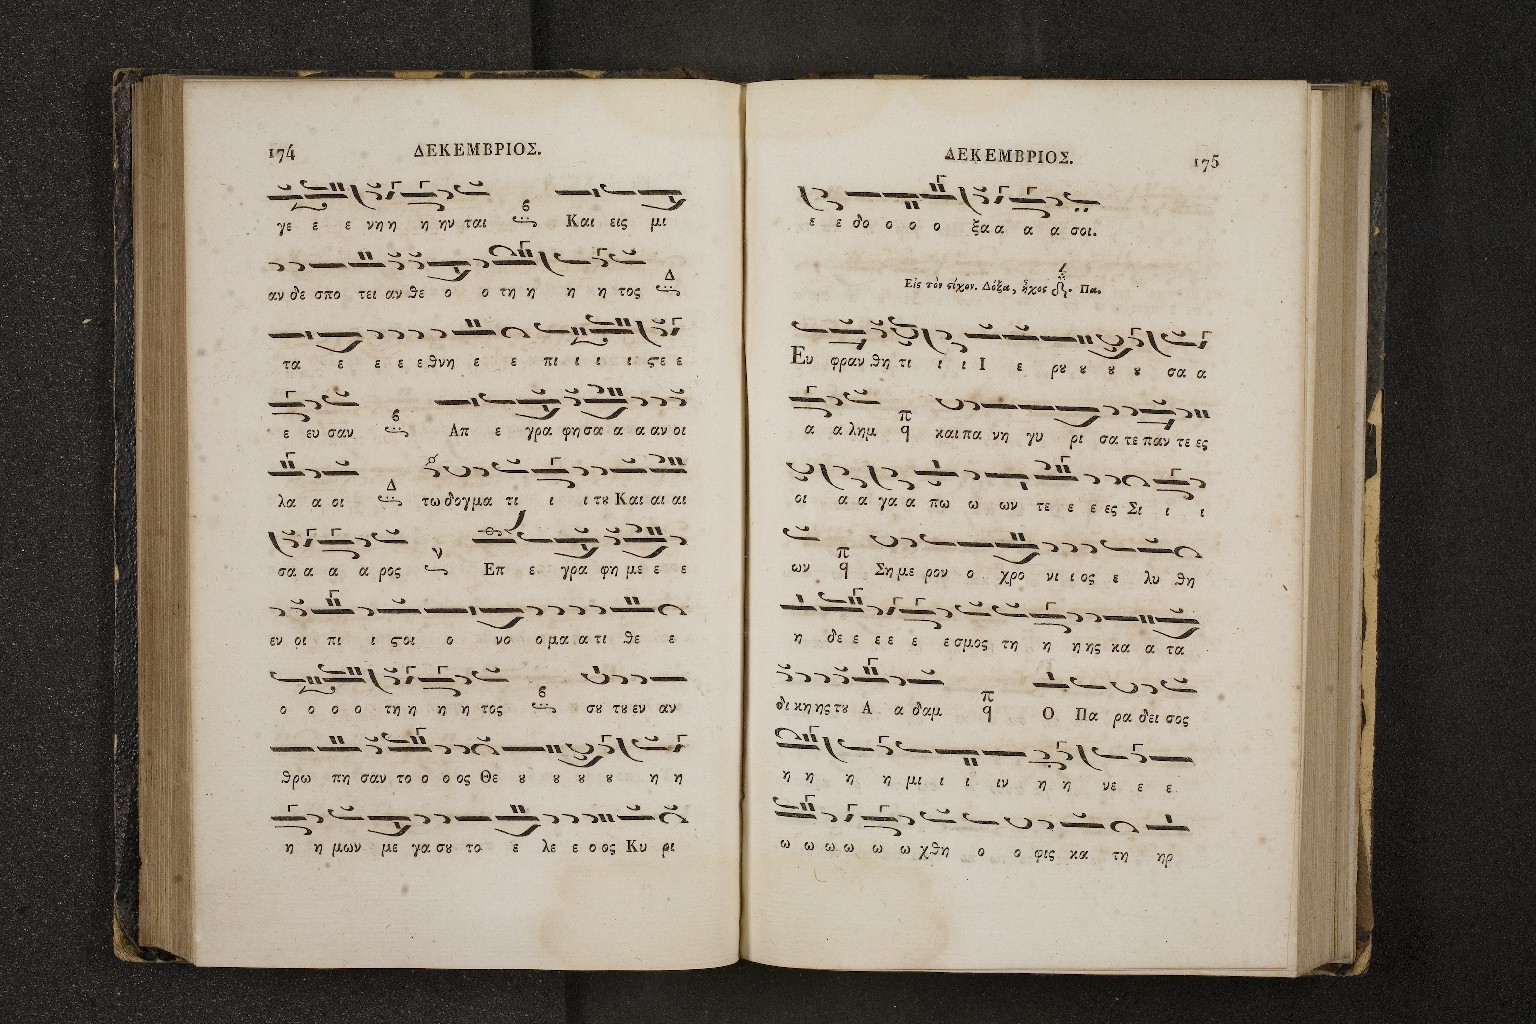 174 ΔΕΚΕΜΒΡΙΟΣ.
γε ε ε νη η η ην ται Και εις μι
αν δε σπο τει αν θε ο ο τη η η η τος
τα ε ε ε ε θνη ε ε πι ι ι ι ϛε ε
ε ευ σαν Απ ε γρα φη σα α α αν οι
λα α οι τω δογμα τι ι ι τȣ Και αι αι
σα α α α ρος Επ ε γρα φη με ε ε
εν οι πι ι ϛοι ο νο ο μα α τι θε ε
ο ο ο ο τη η η η τος σȣ τȣ εν αν
θρω πη σαν το ο ο ος Θε ȣ ȣ ȣ ȣ η η
η η μων με γα σȣ το ε λε ε ο ος Κυ ρι
ΔΕΚΕΜΒΡΙΟΣ. 175
ε ε δο ο ο ο ξα α α α σοι.
Εἰς τὸν ϛίχον. Δόξα, ἦχος Πα.
Ευ φραν θη τι ι ι Ι ε ρȣ ȣ ȣ ȣ σα α
α α λημ και πα νη γυ ρι σα τε παν τε ες
οι α α γα α πω ω ων τε ε ε ες Σι ι ι
ων Ση με ρον ο χρο νι ι ος ε λυ θη
η δε ε ε ε ε ε σμος τη η η ης κα α τα
δι κη ης τȣ Α α δαμ Ο Πα ρα δει σος
η η η η μι ι ι ιν η η νε ε ε
ω ω ω ω ω ω χθη ο ο φις κα τη ηρ